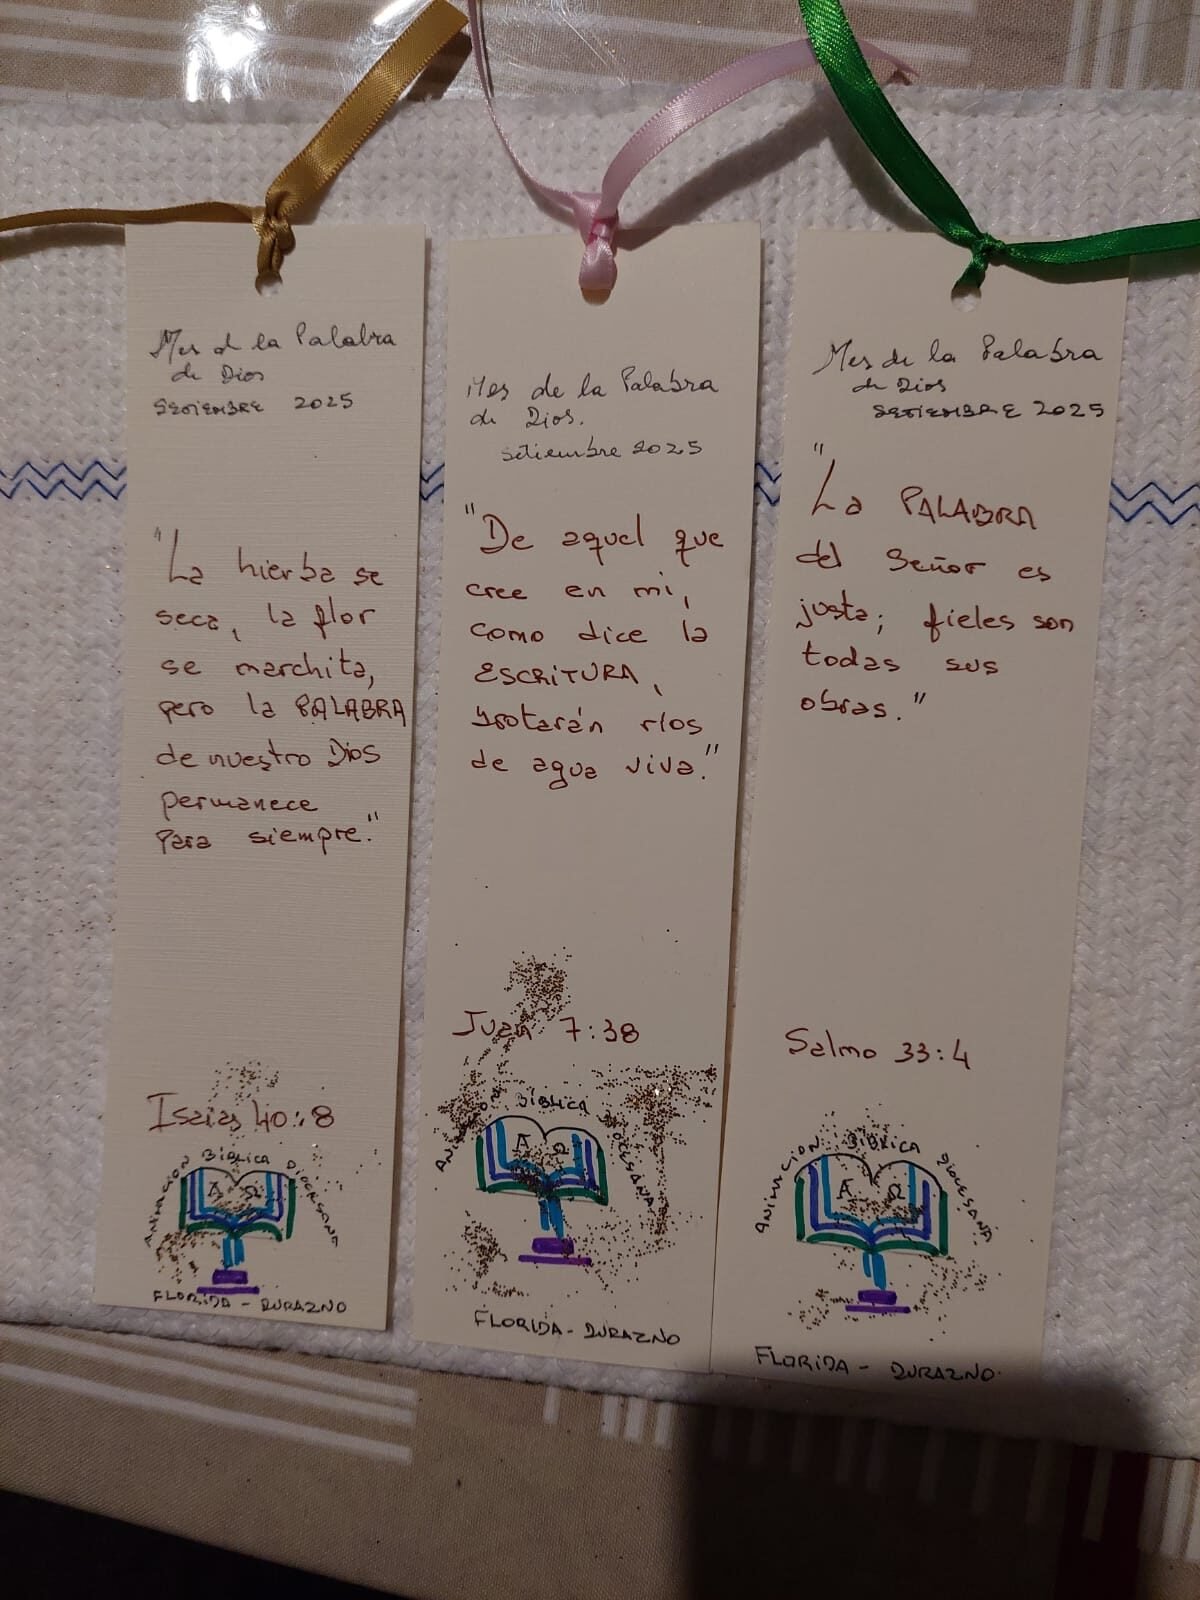 Mes d la Palabra
de Dios
SETIEMBRE 2025
"La hierba se
seca, la flor
se marchita,
pero la PALABRA
de nuestro Dios
permanece
para siempre."
Isaías 40:8
ANIMACION BIBLICA DIOCESANA
A Ω
FLORIDA - DURAZNO
Mes de la Palabra
de Dios.
setiembre 2025
"De aquel que
cree en mi,
como dice la
ESCRITURA,
brotarán ríos
de agua viva."
Juan 7:38
ANIMACION BIBLICA DIOCESANA
A Ω
FLORIDA - DURAZNO
Mes de la Palabra
de Dios
SETIEMBRE 2025
"La PALABRA
del Señor es
justa; fieles son
todas sus
obras."
Salmo 33:4
ANIMACION BIBLICA DIOCESANA
A Ω
FLORIDA - DURAZNO